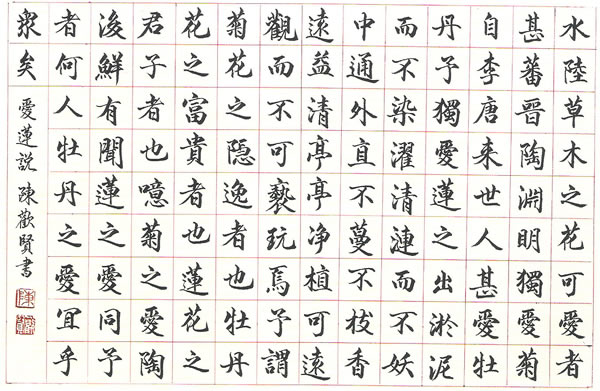 水陸草木之花可愛者
甚蕃晉陶淵明獨愛菊
自李唐来世人甚愛牡
丹予獨愛蓮之出淤泥
而不染濯清漣而不妖
中通外直不蔓不枝香
遠益清亭亭净植可遠
觀而不可褻玩焉予謂
菊花之隱逸者也牡丹
花之富貴者也蓮花之
君子者也噫菊之愛陶
後鮮有聞蓮之愛同予
者何人牡丹之愛宜乎
眾矣
愛蓮説 陳歡賢書